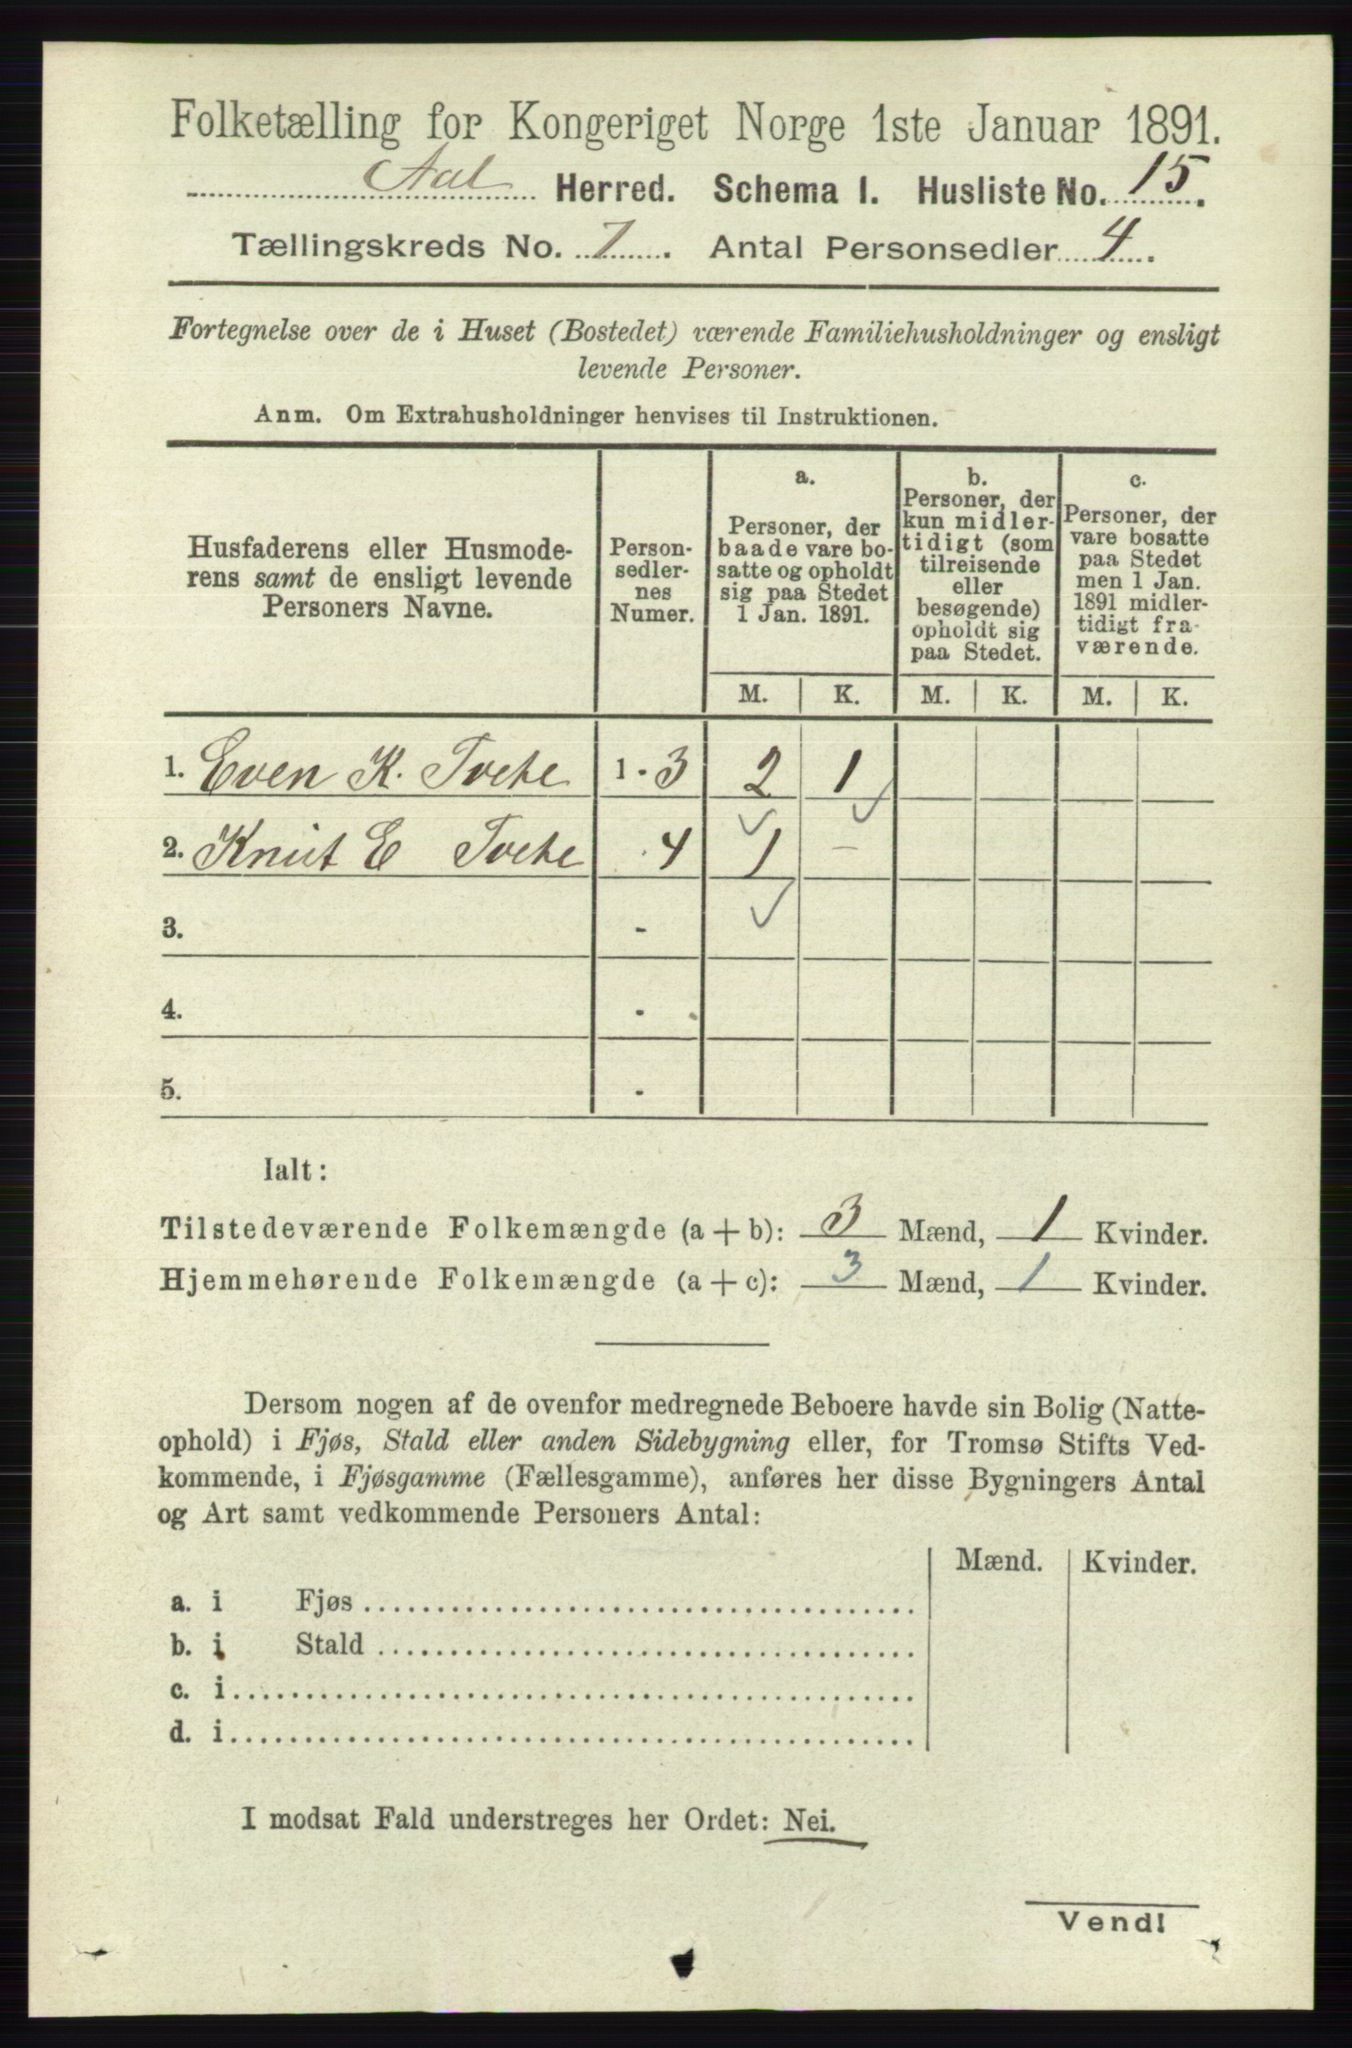 Folketælling for Kongeriget Norge 1ste Januar 1891.
Aal Herred. Schema 1. Husliste No. 15.
Tællingskreds No. 7. Antal Personsedler 4.
Fortegnelse over de i Huset (Bostedet) værende Familiehusholdninger og ensligt
levende Personer.
Anm. Om Extrahusholdninger henvises til Instruktionen.
Husfaderens eller Husmode-
rens samt de ensligt levende
Personers Navne.
Person-
sedler-
nes
Numer.
a.
Personer, der
baade vare bo-
satte og opholdt
sig paa Stedet
1 Jan. 1891.
b.
Personer, der
kun midler-
tidigt (som
tilreisende
eller
besøgende)
opholdt sig
paa Stedet.
c.
Personer, der
vare bosatte
paa Stedet
men 1 Jan.
1891 midler-
tidigt fra-
værende.
M. K. M. K. M. K.
1. Even K. Tvete 1 - 3 2 1
2. Knut E Tvete 4 1 –
3. -
4. -
5. -
Ialt:
Tilstedeværende Folkemængde (a + b): 3 Mænd, 1 Kvinder.
Hjemmehørende Folkemængde (a + c): 3 Mænd, 1 Kvinder.
Dersom nogen af de ovenfor medregnede Beboere havde sin Bolig (Natte-
ophold) i Fjøs, Stald eller anden Sidebygning eller, for Tromsø Stifts Ved-
kommende, i Fjøsgamme (Fællesgamme), anføres her disse Bygningers Antal
og Art samt vedkommende Personers Antal:
Mænd. Kvinder.
a. i Fjøs
b. i Stald
c. i
d. i
I modsat Fald understreges her Ordet: Nei.
Vend!